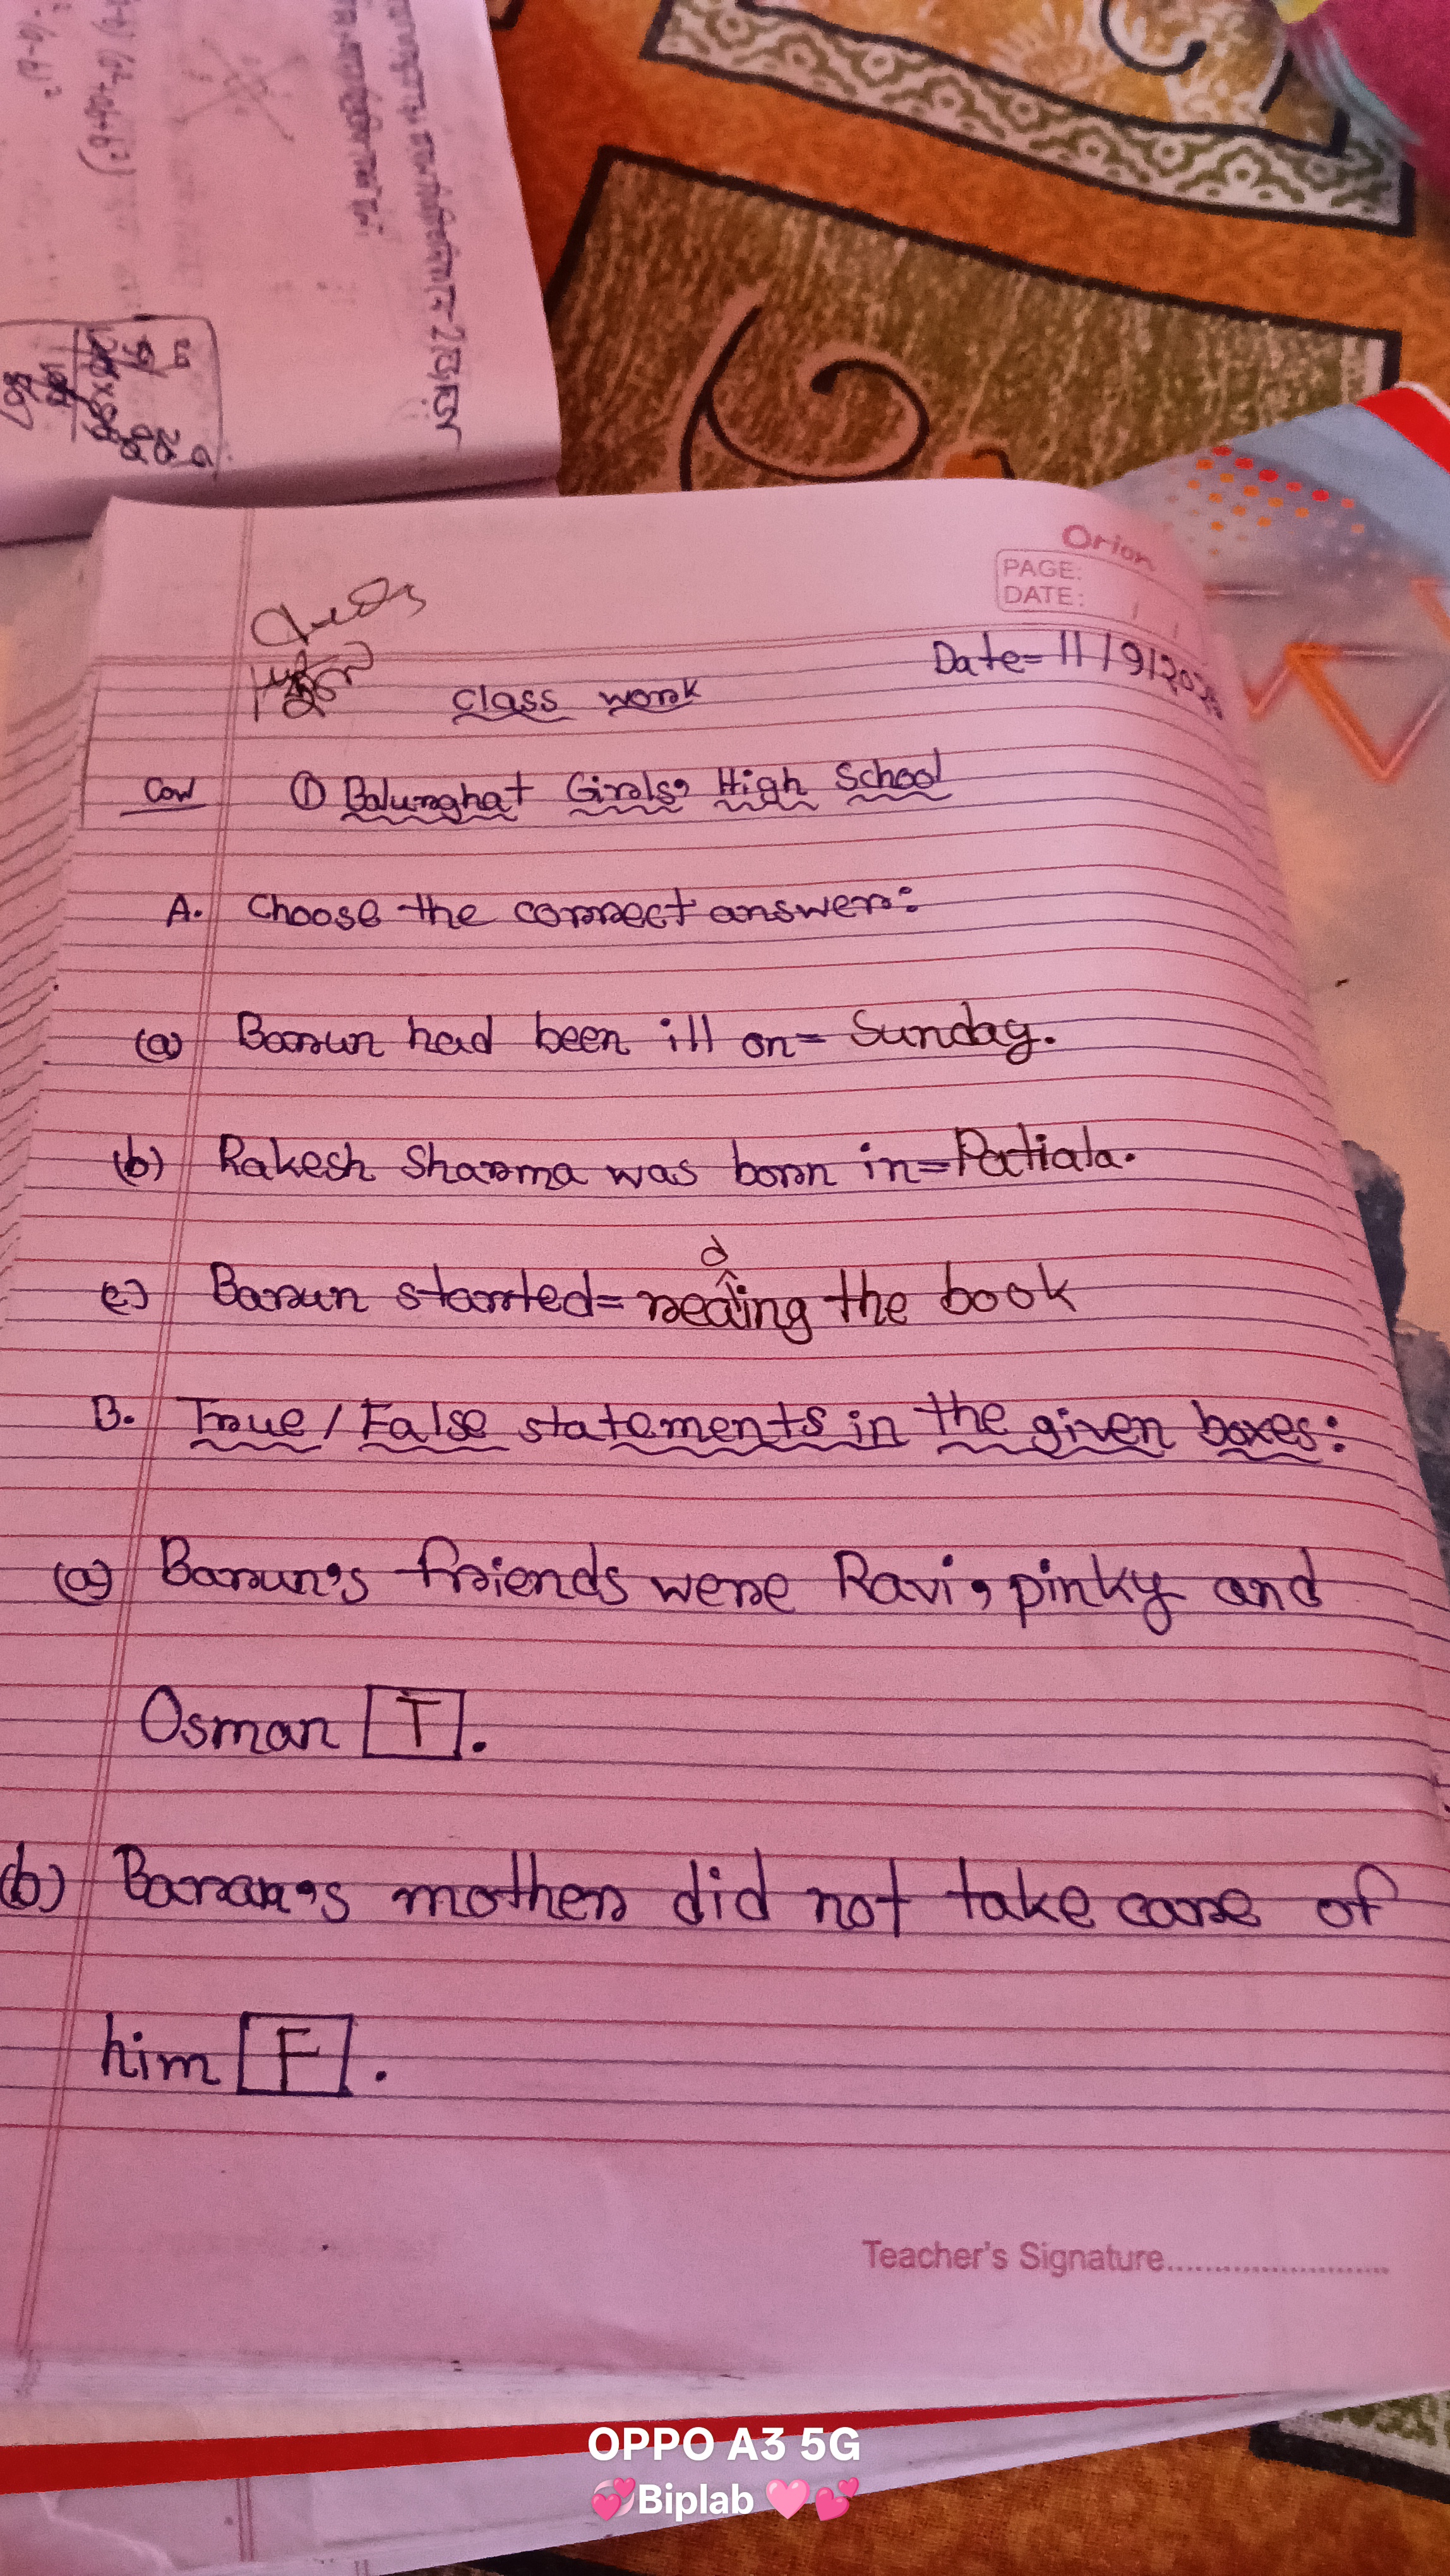 Orion
PAGE:
DATE:
Date= 11/9/2025
Class work
① Balurghat Girls, High School
A. Choose the correct answer:
(a) Barun had been ill on= Sunday.
(b) Rakesh Sharma was born in= Patiala.
d
(c) Barun started= reaing the book
B. True / False statements in the given boxes:
(a) Barun's friends were Ravi, pinky and
Osman T.
(b) Barun's mother did not take care of
him F.
Teacher's Signature
OPPO A3 5G
💞Biplab 🩷💕